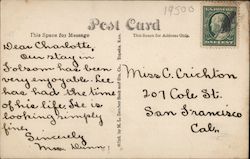 19500
Post Card
This Space for Message
This Space for Address Only.
Dear Charlotte,
Our stay in
Folsom has been
very enjoyable. Lee
has had the time
of his life. He is
looking simply
fine.
Sincerely
Miss
Miss C. Crichton
207 Cole St.
San Francisco
Cal.